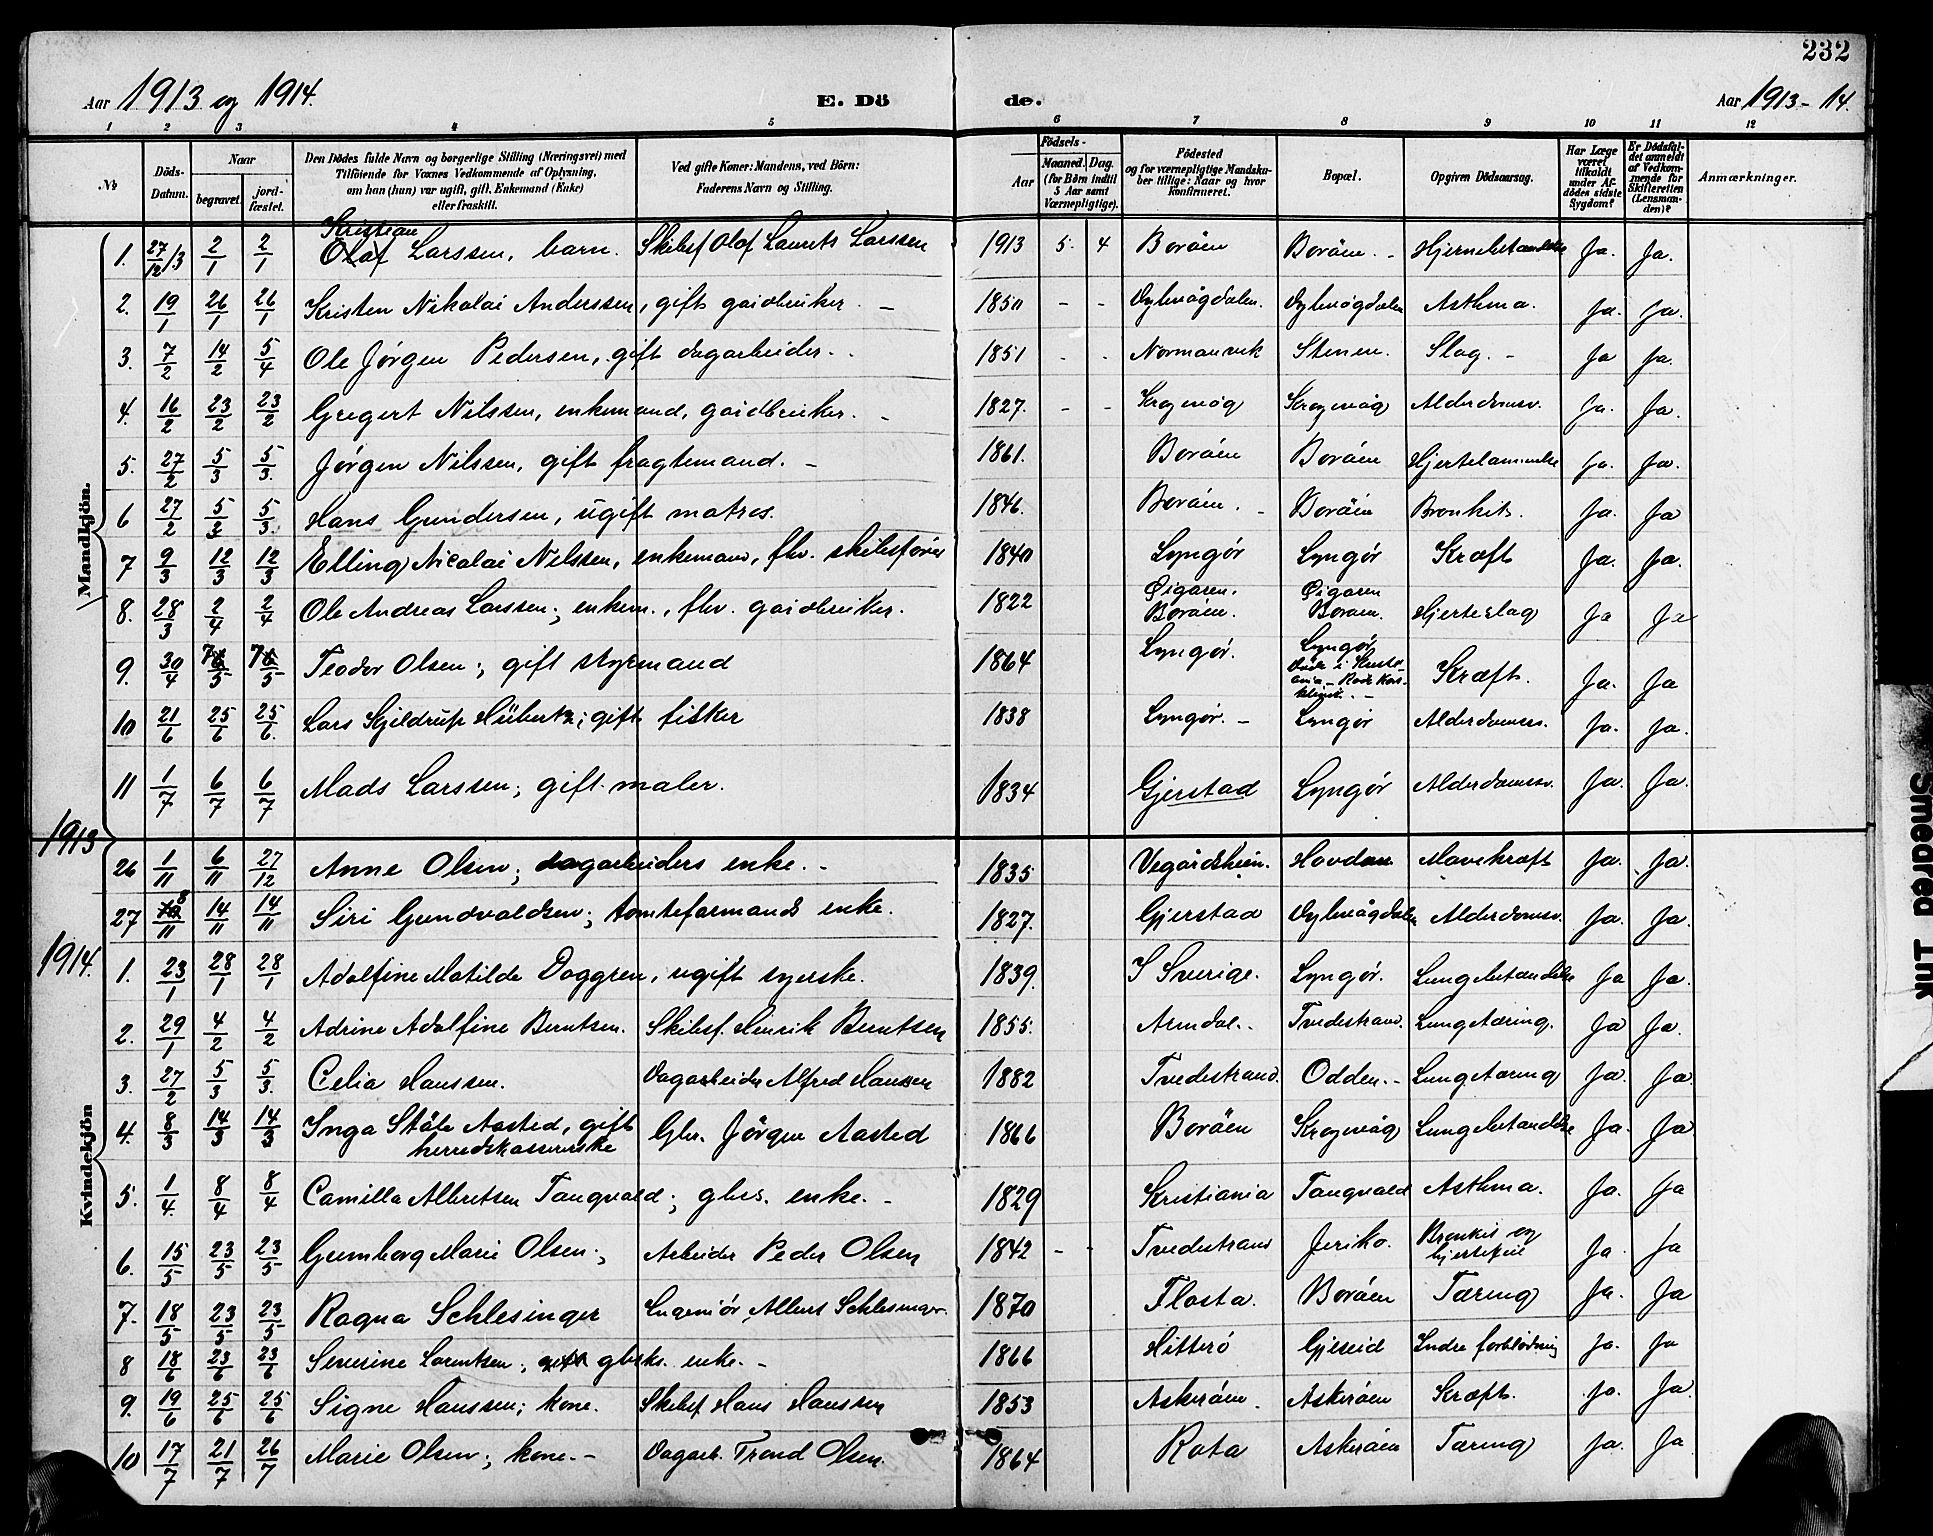 232
Aar 1913 og 1914. E. Dö de. Aar 1913-14.
1 2 3 4 5 6 7 8 9 10 11 12
№ Döds-Datum. Naar begravet. jordfæstet. Den Dödes fulde Navn og borgerlige Stilling (Næringsvei) med Tilföiende for Voxnes Vedkommende af Oplysning, om han (hun) var ugift, gift, Enkemand (Enke) eller fraskilt. Ved gifte Koner: Mandens, ved Börn: Faderens Navn og Stilling. Födsels- Aar Maaned. Dag. (for Börn indtil 5 Aar samt Værnepligtige). Födested og for værnepligtige Mandskaber tillige: Naar og hvor konfirmeret. Bopæl. Opgiven Dödsaarsag. Har Læge været tilkaldt under Afdödes sidste Sygdom? Er Dödsfaldet anmeldt af Vedkommende for Skifteretten (Lensmanden)? Anmærkninger.
Mandkjön.
Kristian
1. 27/12/3 2/1 2/1 Olaf Larssen, barn. Skibsf Olof Laurits Larssen 1913 5. 4 Boröen Boröen. - Hjernebetændelse Ja. Ja.
2. 19/1 26/1 26/1 Kristen Nikolai Anderssen, gift gaardbruker - 1850 - - Dybvågdalen. Dybvågdalen Asthma. Ja. Ja.
3. 7/2 14/2 5/4 Ole Jørgen Pedersen, gift dagarbeider. - 1851 - - Normanvik Stenen. Slag. - Ja Ja.
4. 16/2 23/2 23/2 Gregert Nilssen, enkemand, gardbruker. - 1827. - - Krogevåg Krogevåg Alderdomsv. Ja. Ja.
5. 27/2 5/3 5/3. Jørgen Nilssen, gift fragtemand. - 1861. Boröen Boröen Hjertelammelse Ja. Ja.
6 27/2 5/3 5/3. Hans Gundersen, ugift matros. 1846. Boröen. - Boröen Bronkit. Ja. Ja
7 9/3 12/3 12/3 Elling Nicolai Nilssen, enkemand, fhv. skibsfører 1840 Lyngør Lyngør Kræft Ja. Ja.
8. 28/3 2/4 2/4 Ole Andreas Larssen; enkem., fhv. gardbruker. 1822 Øigaren. Boröen. Øigaren Boröen. Hjerteslag Ja Ja
9. 30/4 7/5 7/5 Teodor Olsen; gift styrmand 1864 Lyngør. Lyngør Kræft. Ja. Ja
10 21/6 25/6 25/6. Lars Kjeldrup Hübertz; gift fisker 1838 Lyngør. - Lyngør Alderdomsv. Ja. Ja.
11 1/7 6/7 6/7 Mads Larssen; gift maler. 1834 Gjerstad Lyngør Alderdomsv. Ja. Ja.
1913
26 1/11 6/11 27/12 Anne Olsen; dagarbeiders enke. - 1835 Vegårdsheim. Hovdan Mavekræft Ja. Ja.
27 8/11 14/11 14/11 Siri Gundvaldsen; tomteformands enke. 1827. Gjerstad Dybvågdalen Alderdomsv. Ja. Ja.
1914.
Kvindekjön
1. 23/1 28/1 28/1 Adolfine Matilde Doggren, ugift syerske. 1839. I Sverige. Lyngør. Lungebetændelse Ja Ja.
2. 29/1 4/2 4/2 Adrine Adolfine Berntsen. Skibsf. Henrik Berntsen 1855. Arendal. Tvedestrand. Lungetæring. Ja Ja.
3. 27/2 5/3 5/3. Celia Hanssen. Dagarbeider Alfred Hanssen 1882 Tvedestrand. Odden. - Lungetæring Ja. Ja
4. 8/3 14/3 14/3 Inga Ståle Aasted, gift herredskassererske Gbr. Jörgen Aasted 1866 Boröen Krogevåg Lungebetændelse Ja. Ja
5. 1/4. 8/4 8/4 Camilla Albretsen Tangvald; gbrs. enke. - 1829 Kristiania Tangvald Asthma. Ja. Ja
6. 15/5 23/5 23/5 Gunnborg Marie Olsen; Arbeider Peder Olsen 1842 - - Tvedestrand Jeriko. Bronkit og hjertefeil Ja. Ja
7. 18/5 23/5 23/5 Ragna Schlesinger Ingeniør, Albert Schlesinger. 1870 Flosta. Boröen Tæring Ja. Ja
8 18/6 23/6 23/6 Severine Lorentsen; gbrks. enke. - 1866 Hitterö Gjeseid Indre forblödning Ja. Ja
9. 19/6 25/6 25/6 Signe Hanssen; kone. Skibsf Hans Hanssen 1853 Askeröen. Askeröen Kræft. Ja. Ja
10 17/7 21/7 26/7 Marie Olsen; kone. - Dagarb. Trond Olsen. 1864 Rota Askeröen Tæring Ja. Ja
Smeared Ink